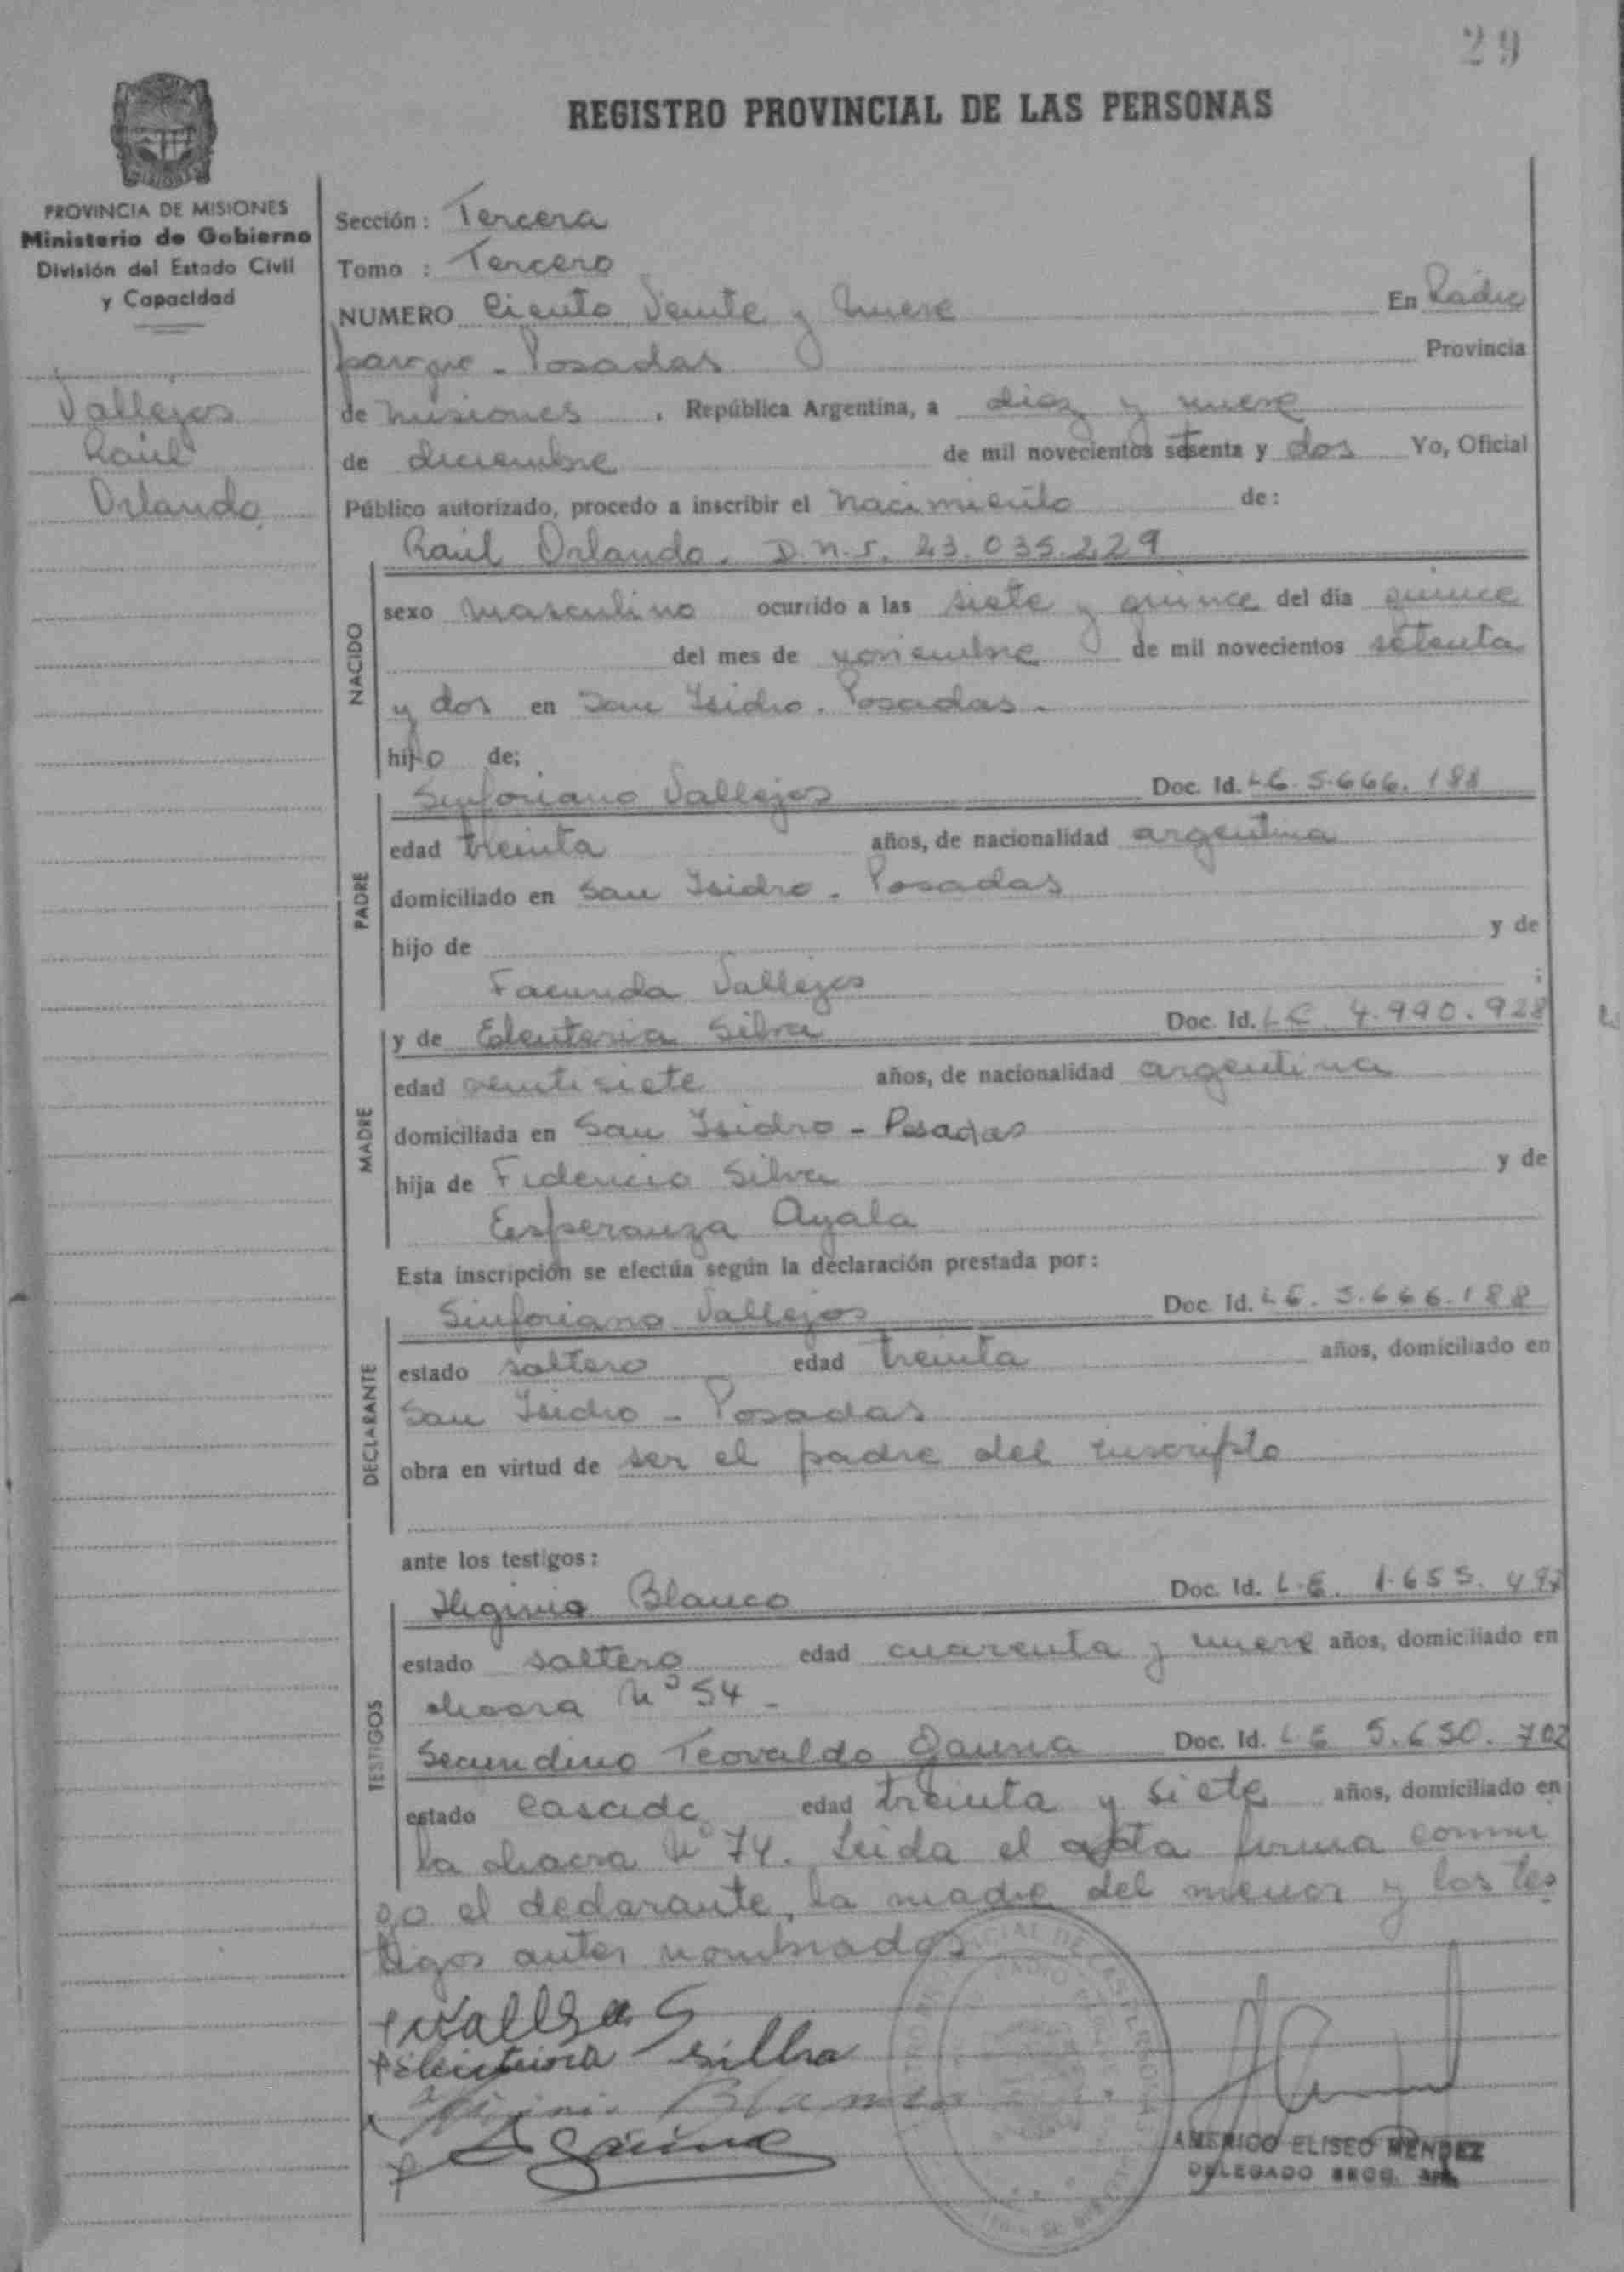 29
REGISTRO PROVINCIAL DE LAS PERSONAS
PROVINCIA DE MISIONES
Ministerio de Gobierno
División del Estado Civil
y Capacidad
Vallejos
Raúl
Orlando
Sección: Tercera
Tomo : Tercero
NUMERO Ciento Veinte y nueve En Radio
parque - Posadas Provincia
de misiones , República Argentina, a diez y nueve
de diciembre de mil novecientos setenta y dos Yo, Oficial
Público autorizado, procedo a inscribir el nacimiento de:
Raúl Orlando. D.N.I. 23.035.229
NACIDO
sexo masculino ocurrido a las siete y quince del día quince
del mes de noviembre de mil novecientos setenta
y dos en San Isidro. Posadas.
hijo de;
PADRE
Sinforiano Vallejos Doc. Id. L.E. 5.666.188
edad treinta años, de nacionalidad argentina
domiciliado en San Isidro. Posadas
hijo de y de
Facunda Vallejos ;
MADRE
y de Eleuteria Silva Doc. Id. L E 4.990.928
edad veintisiete años, de nacionalidad argentina
domiciliada en San Isidro - Posadas
hija de Fidencio Silva y de
Esperanza Ayala
Esta inscripción se efectúa según la declaración prestada por:
DECLARANTE
Sinforiano Vallejos Doc. Id. L E. 5.666.188
estado soltero edad treinta años, domiciliado en
San Isidro - Posadas
obra en virtud de ser el padre del inscripto
ante los testigos:
TESTIGOS
Higinio Blanco Doc. Id. L.E. 1.655.
estado soltero edad cuarenta y nueve años, domiciliado en
chacra Nº 54 -
Secundino Teovaldo Gauna Doc. Id. L E 5.650.702
estado casado edad treinta y siete años, domiciliado en
la chacra Nº 74. Leida el acta firma conmi
go el declarante, la madre del menor y los tes
tigos antes nombrados
Vallejos
Eleuteria Silba
Higinio Blanco
Gauna
AMERICO ELISEO MENDEZ
DELEGADO SECC.